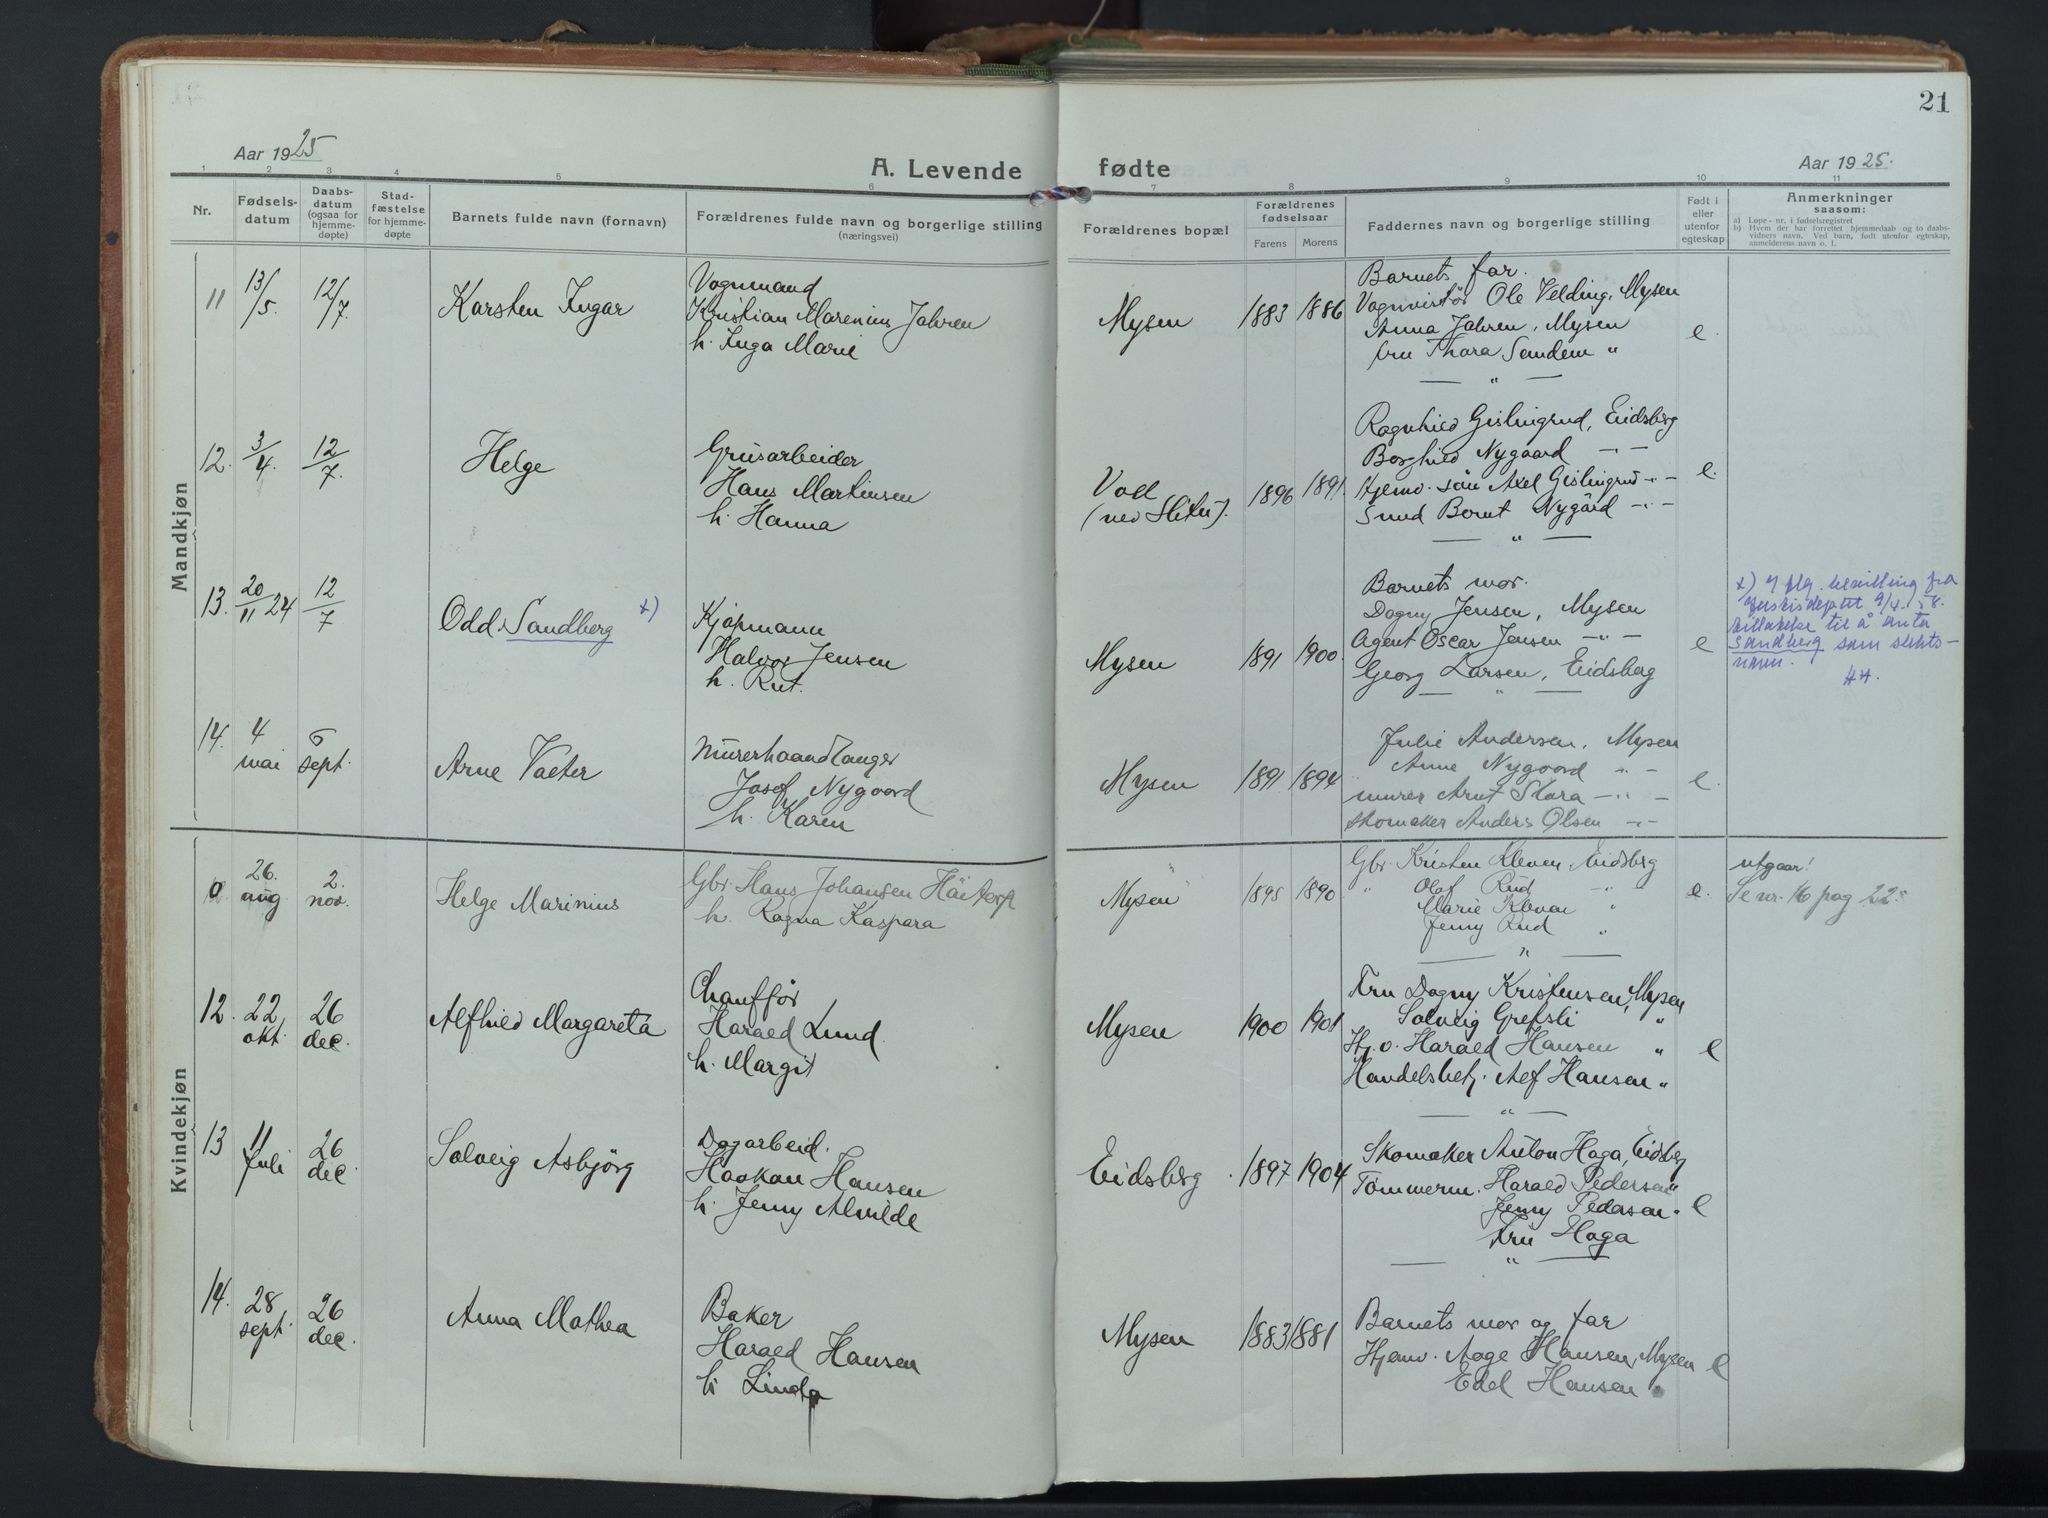 21
Aar 1925
A. Levende fødte
Aar 1925.
1 2 3 4 5 6 7 8 9 10 11
Nr.
Fødselsdatum
Daabsdatum (ogsaa for hjemmedøpte)
Stadfæstelse for hjemmedøpte
Barnets fulde navn (fornavn)
Forældrenes fulde navn og borgerlige stilling (næringsvei)
Forældrenes bopæl
Forældrenes fødselsaar
Farens Morens
Faddernes navn og borgerlige stilling
Født i eller utenfor egteskap
Anmerkninger saasom:
a) Løpe-nr. i fødselsregistret
b) Hvem der har forrettet hjemmedaab og to daabsvidners navn. Ved barn, født utenfor egteskap, anmelderens navn o. l.
Mandkjøn
11 13/5. 12/7. Karsten Ingar
Vognmand
Kristian Marenius Jahren
h. Inga Marie
Mysen 1883 1886
Barnets far.
Ole Velding, Mysen
Anna Jahren, Mysen
fru Thora Sandem "
e.
12. 3/4. 12/7. Helge
Grusarbeider
Hans Martinsen
h. Hanna
(ved Slitu). 1896 1891.
Ragnhild Gislingrud, Eidsberg
Borghild Nygaard -"-
Hjemv. søn Axel Gislingrud -"-
Bernt Nygård -"-
e.
13. 20/11 24 12/7 Odd. Sandberg x)
Kjøpmann
Halvor Jensen
h. Rut.
Mysen 1891 1900
Barnets mor.
Dagny Jensen, Mysen
Agent Oscar Jensen -"-
Georg Larsen, Eidsberg
e
x) I flg. bevilling fra
Justisdeptet 9/4. 58.
tillatelse til å anta
Sandberg som slekts-
navn. HH.
14. 4 mai 6 sept. Arne
Murerhaandlanger
Josef Nygaard
h. Karen
Mysen 1891 1894
Julie Andersen, Mysen
Anne Nygaard -"-
murer Arnt Skara -"-
skomaker Anders Olsen -"-
e.
Kvindekjøn
26. aug. 2. nov. Helge Marinius
Gbr. Hans Johansen
h. Ragna Kaspara
Mysen 1895 1890
Gbr. Kristen Kleven, Eidsberg
" Olaf Rud -"-
Marie Kleven "
Jenny Rud "
e.
utgaar!
Se nr. 16 pag 22.
12. 22 okt. 26 dec. Alfhild Margareta
Chauffør
Harald Lund
h. Margit
Mysen 1900 1901
Fru Dagny Kristensen, Mysen
Solveig Grefsli "
Hj.v. Harald Hansen "
Handelsbetj. Alf Hansen "
e
13 11 Juli 26 dec. Solveig Asbjörg
Dagarbeid.
Haakon Hansen
h. Jenny Alvilde
Eidsberg. 1897 1904
Skomaker Anton Haga, Eidsberg
Tømmerm. Harald Pedersen "
Jenny Pedersen "
Fru Haga
e
14. 28 sept. 26 dec. Anna Mathea
Baker
Harald Hansen
h. Linda
Mysen 1883 1881
Barnets mor og far
Hjemv. Aage Hansen, Mysen
Edel Hansen "
e